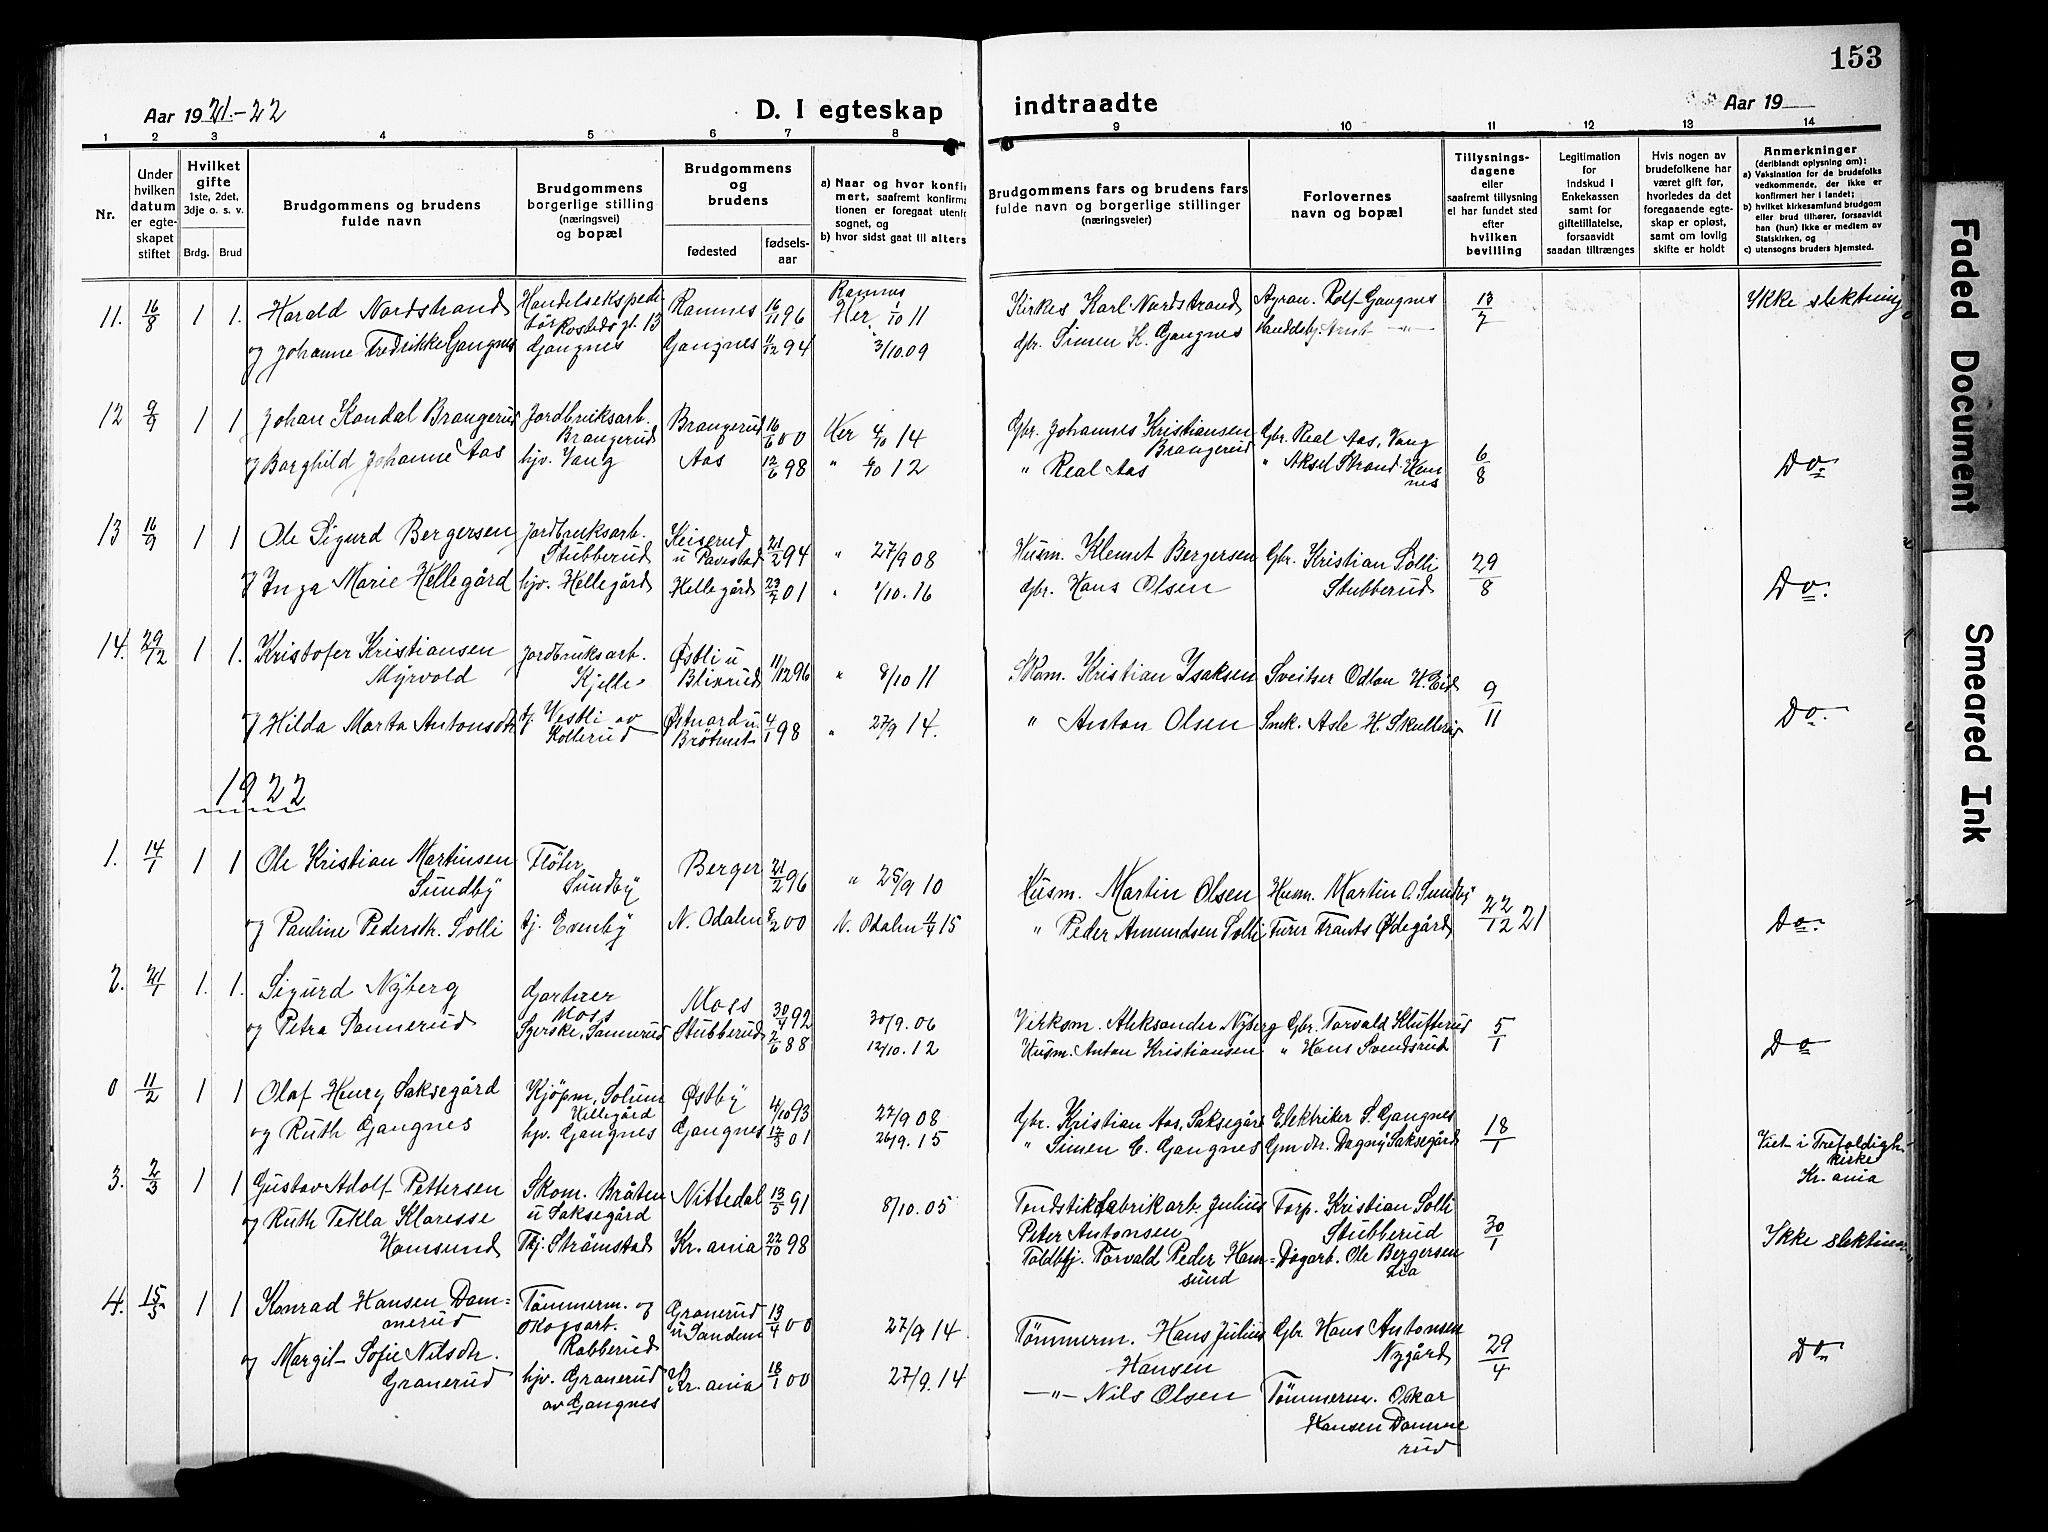 153
Aar 1921.-22
D. I egteskap indtraadte
Aar 19
1 2 3 4 5 6 7 8 9 10 11 12 13 14
Nr.
Under hvilken datum er egteskapet stiftet
Hvilket gifte 1ste, 2det, 3dje o. s. v.
Brdg. Brud
Brudgommens og brudens fulde navn
Brudgommens borgerlige stilling (næringsvei) og bopæl
Brudgommens og brudens
fødested
fødselsaar
a) Naar og hvor konfirmert, saafremt konfirmationen er foregaat utenfor sognet, og
b) hvor sidst gaat til alters
Brudgommens fars og brudens fars fulde navn og borgerlige stillinger (næringsveier)
Forlovernes navn og bopæl
Tillysningsdagene eller saafremt tillysning ei har fundet sted efter hvilken bevilling
Legitimation for Indskud i Enkekassen samt for giftetillatelse, forsaavidt saadan tiltrænges
Hvis nogen av brudefolkene har været gift før, hvorledes da det foregaaende egteskap er opløst, samt om lovlig skifte er holdt
Anmerkninger (deriblandt oplysning om):
a) Vaksination for de brudefolks vedkommende, der ikke er konfirmert her i landet;
b) hvilket kirkesamfund brudgom eller brud tilhører, forsaavidt han (hun) ikke er medlem av Statskirken, og
c) utensogns bruders hjemsted.
11. 16/8 1 1. Harald Nordstrand Handelsekspeditør Rostedsgt. 13 Ramnes 16/11 96 Ramnes Her. 1/10 11 Kirkes Karl Nordstrand Rolf Gangnes 13/7 Ikke slektning
og Johanne Fredrikke Gangnes Gangnes Gangnes 11/12 94 3/10.09 Gbr. Simen K. Gangnes
12 9/9 1 1 Johan Kandal Brangerud Jordbruksarb. Brangerud Brangerud 16/6 00 Her 4/10 14 Gbr. Johannes Kristiansen Brangerud Gbr. Real Aas, Vang 6/8 Do.
og Borghild Johanne Aas hjv. Vang Aas 12/6 98 " 6/10 12 " Real Aas " Aksel Strand Hamnes
13 16/9 1 1 Ole Sigurd Bergersen Jordbruksarb. Stubberud Keiserud u Pavestad 21/2 94 " 27/9 08 Husm. Klemet Bergersen Gbr. Kristian Solli Stubberud 29/8 Do.
og Inga Marie Hellegård hjv. Hellegård Hellegård 23/7 01 " 1/10.16 Gbr. Hans Olsen
14. 29/12 1 1. Kristofer Kristiansen Myrvold Jordbruksarb. Kjelle Østli u Blixrud 11/12 96 " 8/10 11 Skom. Kristian Isaksen Sveitser Odlon H. Eid 9/11 Do.
og Hilda Marta Antonsdtr tj. Vestli av Kollerud 4/1 98 " 27/9 14. " Anton Olsen Smk. Asle H. Skullerud
1922
1. 14/1 1 1 Ole Kristian Martinsen Sundby Fløter Sundby Berger 21/2 96 " 25/9 10 Husm. Martin Olsen Husm. Martin O. Sundby 22/12 21 Do.
og Pauline Pedersth. Solli tj. Evenby N. Odalen 8/2 00 N. Odalen 4/4 15 " Peder Amundsen Solli Furer Frants Ødegård
2. 21/1 1. 1. Sigurd Nyberg Gartner Moss Moss 30/4 92 30/9.06 Virkom. Aleksander Nyberg Gbr. Torvald Klufterud 5/1 Do
og Petra Sannerud Syerske, Sannerud Stubberud 2/6 88 12/10.12 Husm. Anton Kristiansen " Hans Svendsrud
0 11/2 1 1 Olaf Henry Saksegård Kjøpm. Solum Hellegård Østby 4/10 93 27/9 08 Gbr. Kristian Aas, Saksegård Elektriker S. Gangnes 18/1 Viet i Trefoldigh. kirke Kr.ania
og Ruth Gangnes hjv. Gangnes Gangnes 12/8 01 26/9.15 " Simen C. Gangnes Gm dtr. Dagny Saksegård
3. 2/3 1 1 Gustav Adolf Pettersen Skom. Bråten u Saksegård Nittedal 13/5 91 8/10.05 Fyrstikfabrikarb. Julius Peter Antonsen Torp. Kristian Solli Stubberud 30/1 Ikke slektning
og Ruth Tekla Klaresse Hamsund Tj. Strømstad Kr.ania 22/10 98 Toldbtj. Torvald Peder Hamsund Dagarb. Ole Bergersen Lia
4. 15/5 1 1 Konrad Hansen Dammerud Tømmerm. og skogsarb. Rabberud Granerud u Sanden 13/4 00 27/9 14 Tømmerm. Hans Julius Hansen Gbr. Hans Antonsen Nygård 29/4 Do.
og Margit Sofie Nilsdtr. Granerud hjv. Granerud av Gangnes Kr.ania 18/1 00 27/9.14 —"— Nils Olsen Tømmerm. Oskar Hansen Dammerud
Faded Document
Smeared Ink